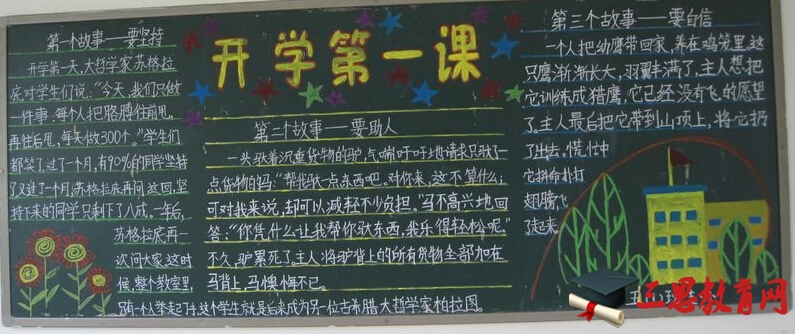 开学第一课
第一个故事——要坚持
开学第一天，大哲学家苏格拉
底对学生们说：“今天，我们只做
一件事：每个人把胳膊往前甩，
再往后甩，每天做300个。”学生们
都笑了，过了一个月，有90%的同学坚持
了，又过了一个月，苏格拉底再问这回，坚
持下来的同学只剩下了八成。一年后，
苏格拉底再一
次问大家，这时
候，整个教室里，
只有一个人举起了手，这个学生就是后来成为另一位古希腊大哲学家柏拉图。
第二个故事——要助人
一头驮着沉重货物的驴，气喘吁吁地请求只驮了一
点货物的马：“帮我驮一点东西吧。对你来，这不算什么；
可对我来说，却可以减轻不少负担。”马不高兴地回
答：“你凭什么让我帮你驮东西，我乐得轻松呢。”
不久，驴累死了，主人将驴背上的所有货物全部加在
马背上，马懊悔不已。
第三个故事——要自信
一个人把幼鹰带回家，养在鸡笼里，这
只鹰渐渐长大，羽翼丰满了，主人想把
它训练成猎鹰，它已经没有飞的愿望
了。主人最后把它带到山顶上，将它扔
了出去。慌忙中
它拼命扑打
翅膀，飞
了起来。
工思教育网